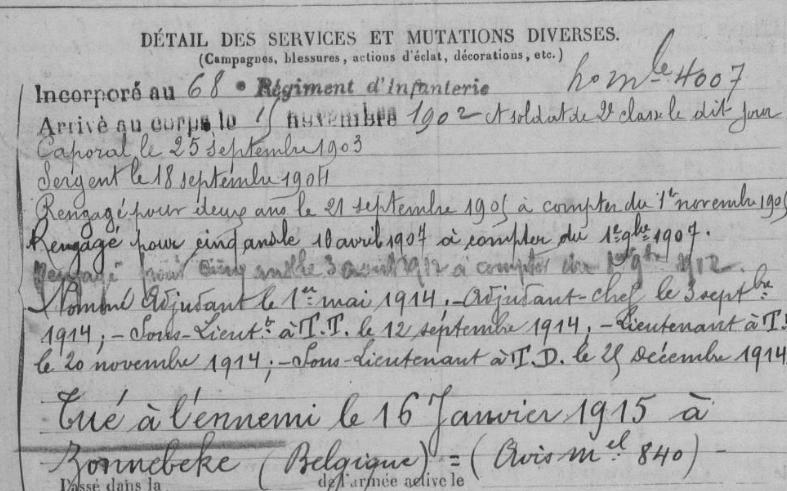 DÉTAIL DES SERVICES ET MUTATIONS DIVERSES.
(Campagnes, blessures, actions d'éclat, décorations, etc.)
Incorporé au 68e Régiment d'Infanterie no mle 4007
Arrivé au corps le 15 novembre 1902 et soldat de 2e classe le dit jour
Caporal le 25 septembre 1903
Sergent le 18 septembre 1904
Rengagé pour deux ans le 21 septembre 1905 à compter du 1er novembre 1905
Rengagé pour cinq ans le 10 avril 1907 à compter du 1er 9bre 1907.
Rengagé pour cinq ans le 3 avril 1912 à compter du 1er 9bre 1912.
Nommé Adjudant le 1er mai 1914.- Adjudant-chef le 3 septbre
1914; - Sous-Lieutt à T.T. le 12 septembre 1914, - Lieutenant à T.
le 20 novembre 1914; - Sous-Lieutenant à T.D. le 25 Décembre 1914
Tué à l'ennemi le 16 Janvier 1915 à
Zonnebeke (Belgique) = (Avis mel 840) -
Passé dans la de l'armée active le